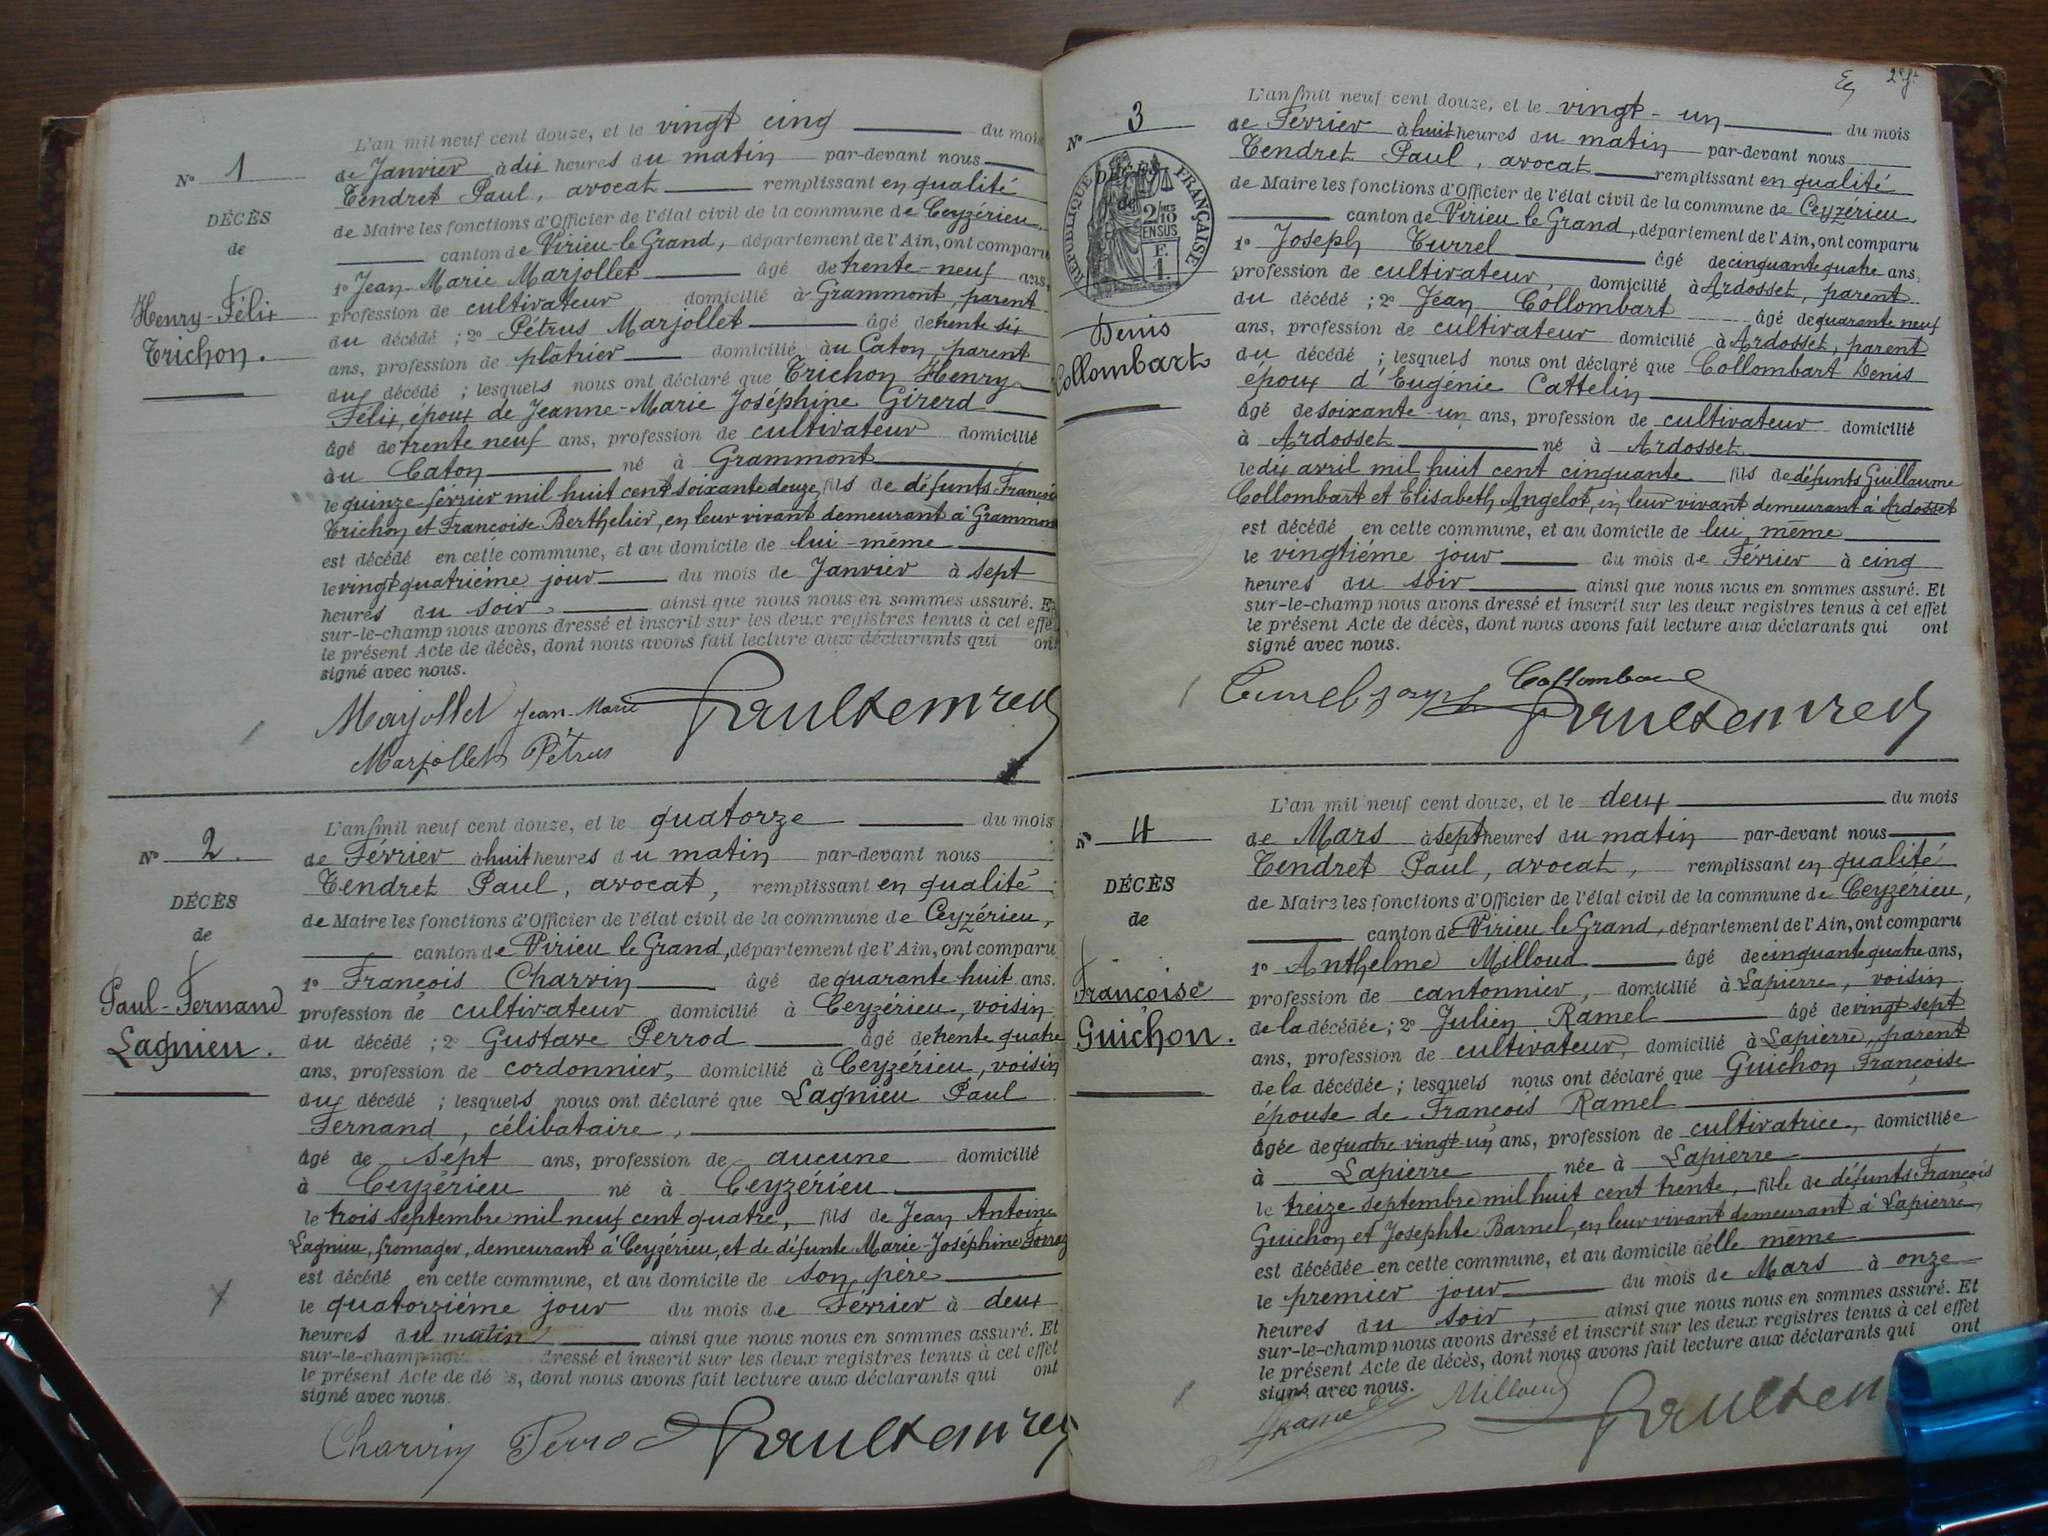 N° 1
DÉCÈS
de
Henry-Félix
Trichon.
L'an mil neuf cent douze, et le vingt cinq du mois
de Janvier à dix heures du matin par-devant nous
Tendret Paul, avocat remplissant en qualité
de Maire les fonctions d'Officier de l'état civil de la commune de Ceyzérieu,
canton de Virieu-le-Grand, département de l'Ain, ont comparu
1° Jean-Marie Marjollet âgé de trente-neuf ans,
profession de cultivateur domicilié à Grammont, parent
du décédé ; 2° Pétrus Marjollet âgé de trente six
ans, profession de plâtrier domicilié au Caton, parent
du décédé ; lesquels nous ont déclaré que Trichon Henry
Félix, époux de Jeanne-Marie Joséphine Girerd
âgé de trente neuf ans, profession de cultivateur domicilié
au Caton né à Grammont
le quinze février mil huit cent soixante douze, fils de défunts François
Trichon et Françoise Berthelier, en leur vivant demeurant à Grammont
est décédé en cette commune, et au domicile de lui-même
le vingt quatrième jour du mois de Janvier à sept
heures du soir, ainsi que nous nous en sommes assuré. Et
sur-le-champ nous avons dressé et inscrit sur les deux registres tenus à cet effet
le présent Acte de décès, dont nous avons fait lecture aux déclarants qui ont
signé avec nous.
Marjollet Jean-Marie
Marjollet Pétrus
Paul Tendret
N° 2.
DÉCÈS
de
Paul-Fernand
Lagnieu.
L'an mil neuf cent douze, et le quatorze du mois
de Février à huit heures du matin par-devant nous
Tendret Paul, avocat, remplissant en qualité
de Maire les fonctions d'Officier de l'état civil de la commune de Ceyzérieu,
canton de Virieu le Grand, département de l'Ain, ont comparu
1° François Charvin âgé de quarante huit ans.
profession de cultivateur domicilié à Ceyzérieu, voisin
du décédé ; 2° Gustave Perrod âgé de trente quatre
ans, profession de cordonnier, domicilié à Ceyzérieu, voisin
du décédé ; lesquels nous ont déclaré que Lagnieu Paul
Fernand, célibataire,
âgé de sept ans, profession de aucune domicilié
à Ceyzérieu né à Ceyzérieu
le trois septembre mil neuf cent quatre, fils de Jean Antoine
Lagnieu, fromager, demeurant à Ceyzérieu, et de défunte Marie-Joséphine
est décédé en cette commune, et au domicile de son père
le quatorzième jour du mois de Février à deux
heures du matin ainsi que nous nous en sommes assuré. Et
sur-le-champ nous dressé et inscrit sur les deux registres tenus à cet effet
le présent Acte de décès, dont nous avons fait lecture aux déclarants qui ont
signé avec nous.
Charvin Perrod Paul Tendret
2e ft
N° 3
DÉCÈS
de
RÉPUBLIQUE FRANÇAISE
2/10 EN SUS
F. 1.
Denis
Collombart
L'an mil neuf cent douze, et le vingt-un du mois
de Février à huit heures du matin par-devant nous
Tendret Paul, avocat remplissant en qualité
de Maire les fonctions d'Officier de l'état civil de la commune de Ceyzérieu
canton de Virieu le Grand, département de l'Ain, ont comparu
1° Joseph Turrel âgé de cinquante quatre ans,
profession de cultivateur, domicilié à Ardosset, parent
du décédé ; 2° Jean Collombart âgé de quarante neuf
ans, profession de cultivateur domicilié à Ardosset, parent
du décédé ; lesquels nous ont déclaré que Collombart Denis
époux d'Eugénie Cattelin
âgé de soixante-un ans, profession de cultivateur domicilié
à Ardosset né à Ardosset
le dix avril mil huit cent cinquante fils de défunts Guillaume
Collombart et Elisabeth Angelot, en leur vivant demeurant à Ardosset
est décédé en cette commune, et au domicile de lui même
le vingtième jour du mois de Février à cinq
heures du soir ainsi que nous nous en sommes assuré. Et
sur-le-champ nous avons dressé et inscrit sur les deux registres tenus à cet effet
le présent Acte de décès, dont nous avons fait lecture aux déclarants qui ont
signé avec nous.
Turrel Joseph Collombart Paul Tendret
N° 4
DÉCÈS
de
Françoise
Guichon.
L'an mil neuf cent douze, et le deux du mois
de Mars à sept heures du matin par-devant nous
Tendret Paul, avocat, remplissant en qualité
de Maire les fonctions d'Officier de l'état civil de la commune de Ceyzérieu,
canton de Virieu le Grand, département de l'Ain, ont comparu
1° Anthelme Milloud âgé de cinquante quatre ans,
profession de cantonnier, domicilié à Lapierre, voisin
de la décédée ; 2° Julien Ramel âgé de vingt sept
ans, profession de cultivateur, domicilié à Lapierre, parent
de la décédée ; lesquels nous ont déclaré que Guichon Françoise
épouse de François Ramel
âgée de quatre vingt-un ans, profession de cultivatrice, domiciliée
à Lapierre née à Lapierre
le treize septembre mil huit cent trente, fille de défunts François
Guichon et Josephte Barnel, en leur vivant demeurant à Lapierre,
est décédée en cette commune, et au domicile d'elle même
le premier jour du mois de Mars à onze
heures du soir, ainsi que nous nous en sommes assuré. Et
sur-le-champ nous avons dressé et inscrit sur les deux registres tenus à cet effet
le présent Acte de décès, dont nous avons fait lecture aux déclarants qui ont
signé avec nous.
Ramel Milloud Paul Ten